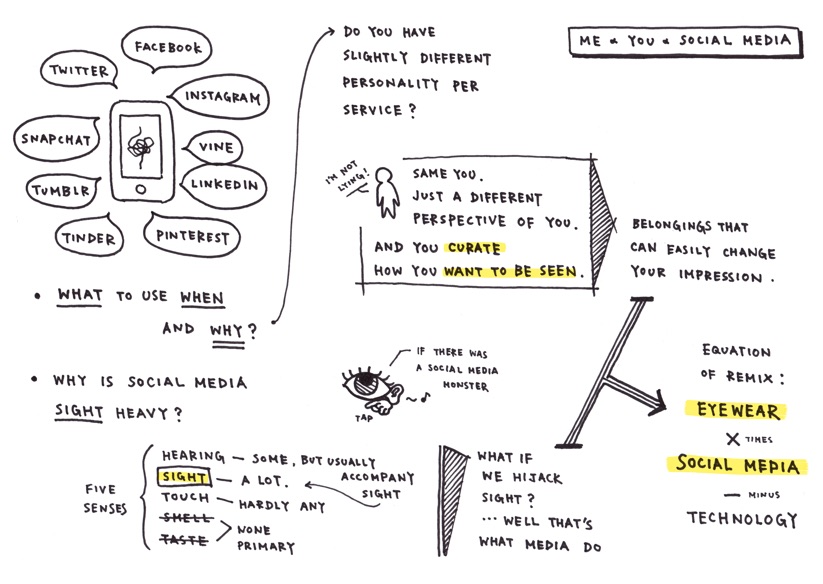 ME & YOU & SOCIAL MEDIA
FACEBOOK
TWITTER
INSTAGRAM
SNAPCHAT
VINE
TUMBLR
LINKEDIN
TINDER
PINTEREST
• WHAT TO USE WHEN
AND WHY?
DO YOU HAVE
SLIGHTLY DIFFERENT
PERSONALITY PER
SERVICE?
I'M NOT
LYING!
SAME YOU.
JUST A DIFFERENT
PERSPECTIVE OF YOU.
AND YOU CURATE
HOW YOU WANT TO BE SEEN.
BELONGINGS THAT
CAN EASILY CHANGE
YOUR IMPRESSION.
• WHY IS SOCIAL MEDIA
SIGHT HEAVY?
IF THERE WAS
A SOCIAL MEDIA
MONSTER
TAP
FIVE
SENSES
HEARING — SOME, BUT USUALLY
ACCOMPANY
SIGHT
SIGHT — A LOT.
TOUCH — HARDLY ANY
SMELL
TASTE
NONE
PRIMARY
WHAT IF
WE HIJACK
SIGHT?
... WELL THAT'S
WHAT MEDIA DO
EQUATION
OF REMIX:
EYEWEAR
X TIMES
SOCIAL MEDIA
— MINUS
TECHNOLOGY